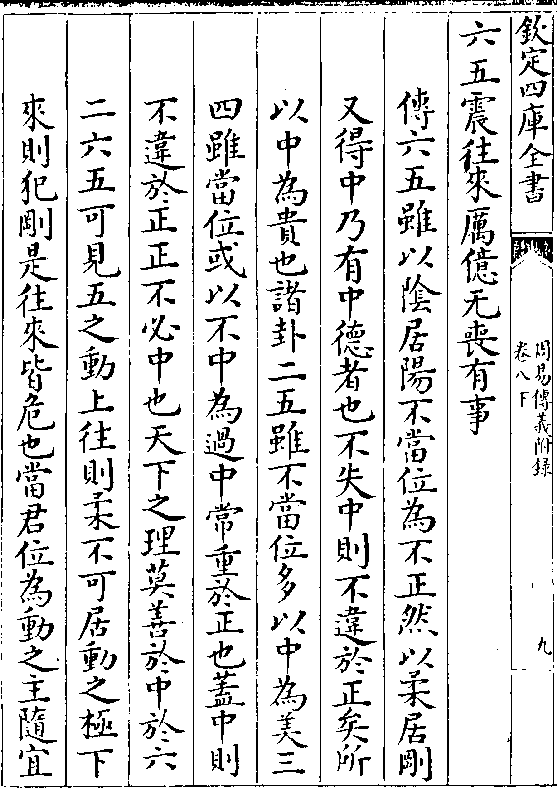 欽定四庫全書
周易傳義附録
卷八下
九
六五震往來厲億无喪有事
傳六五雖以陰居陽不當位為不正然以柔居剛
又得中乃有中德者也不失中則不違於正矣所
以中為貴也諸卦二五雖不當位多以中為美三
四雖當位或以不中為過中常重於正也蓋中則
不違於正正不必中也天下之理莫善於中於六
二六五可見五之動上往則柔不可居動之極下
來則犯剛是往來皆危也當君位為動之主隨宜